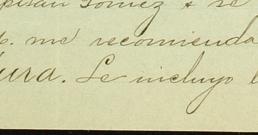 Gomez & se
me recomienda
ura. Le incluyo